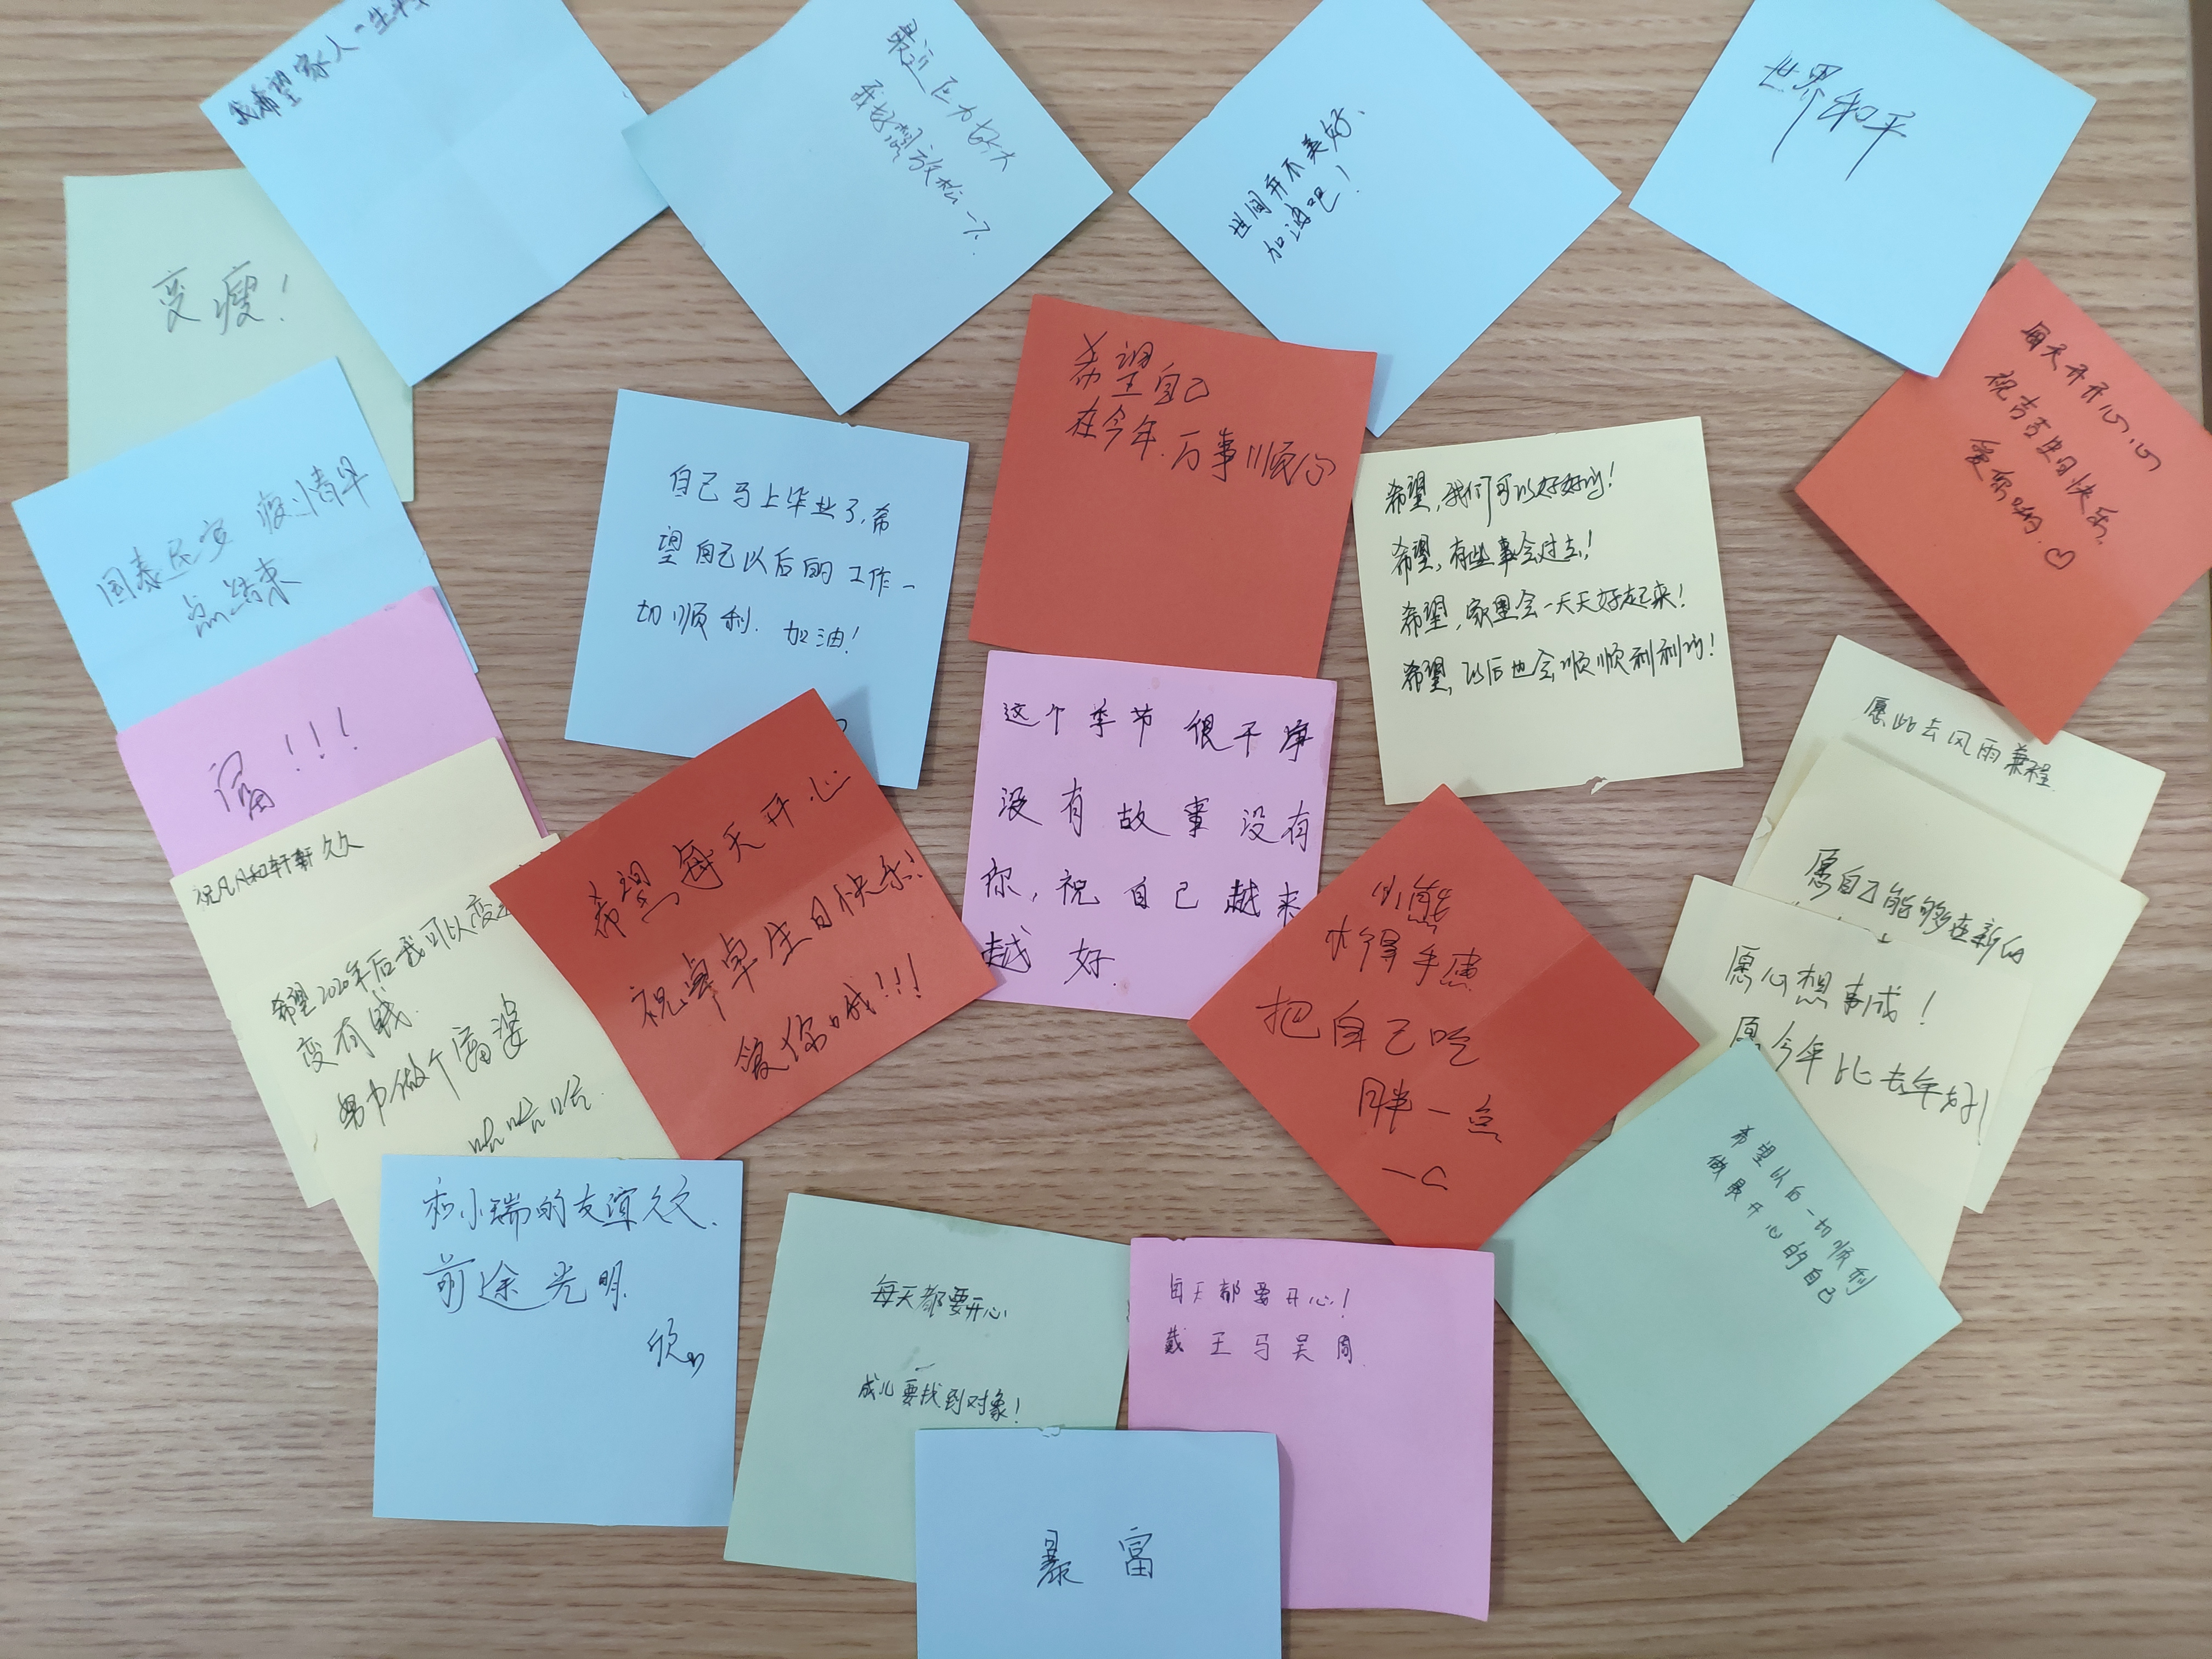 我希望家人一生平
最近压力好大
我好想放松一下.
世间并不美好、
加油吧！
世界和平
变瘦！
希望自己
在今年.万事顺心
每天开开心心
祝吉吉生日快乐.
爱你哟.♡
国泰民安 疫情早
点结束
自己马上毕业了,希
望自己以后的工作一
切顺利. 加油!
希望,我们可以好好的!
希望,有些事会过去!
希望,家里会一天天好起来!
希望,以后也会顺顺利利的!
富！！！
这个季节很干净
没有故事没有
你,祝自己越来
越好.
愿此去风雨兼程
愿自己能够在新的
祝凡凡和轩轩久久
希望2020年后我可以变
变有钱.
努力做个富婆
哈哈哈.
希望每天开心
祝卓卓生日快乐!
爱你哦!!!
小熊
把自己吃
胖一点
愿心想事成！
愿今年比去年好！
希望以后一切顺利
做最开心的自己
和小瑞的友谊久久.
前途光明.
每天都要开心
成儿要找到对象!
每天都要开心!
戴王马吴周
暴富